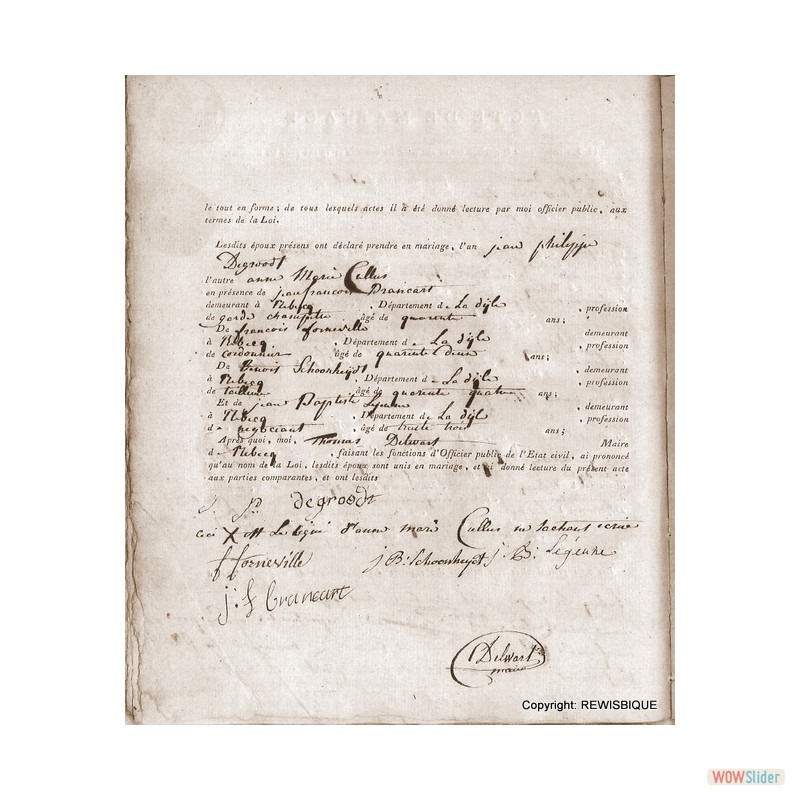 le tout en forme ; de tous lesquels actes il a été donné lecture par moi officier public, aux
termes de la Loi.
Lesdits époux présens ont déclaré prendre en mariage, l'un jean philippe
Degroodt
l'autre anne Marie Cullus
en présence de jean francois Brancart
demeurant à Rebecq , Département d e La dijle , profession
de garde champetre âgé de quarente ans ;
De francois forneville demeurant
à Rebecq , Département d e La dijle , profession
de cordonnier âgé de quarente deux ans ;
De Benoit Schoonheydt demeurant
à Rebecq , Département d e La dijle , profession
de tailleur âgé de quarente quatre ans ;
Et de jean Baptiste Lejeune demeurant
à Rebecq , Département d e La dijle , profession
de negociant , âgé de trente trois ans ;
Après quoi, moi, Thomas Delwart Maire
d e Rebecq , faisant les fonctions d'Officier public de l'Etat civil, ai prononcé
qu'au nom de la Loi, lesdits époux sont unis en mariage, et ai donné lecture du présent acte
aux parties comparantes, et ont lesdits
degroodt
ceci X est Le signe d'anne marie Cullus ne sachant ecrire
f forneville j B: Schoonheydt j: B: Lejeune
j: f brancart
Delwart
maire
Copyright: REWISBIQUE
WOWSlider